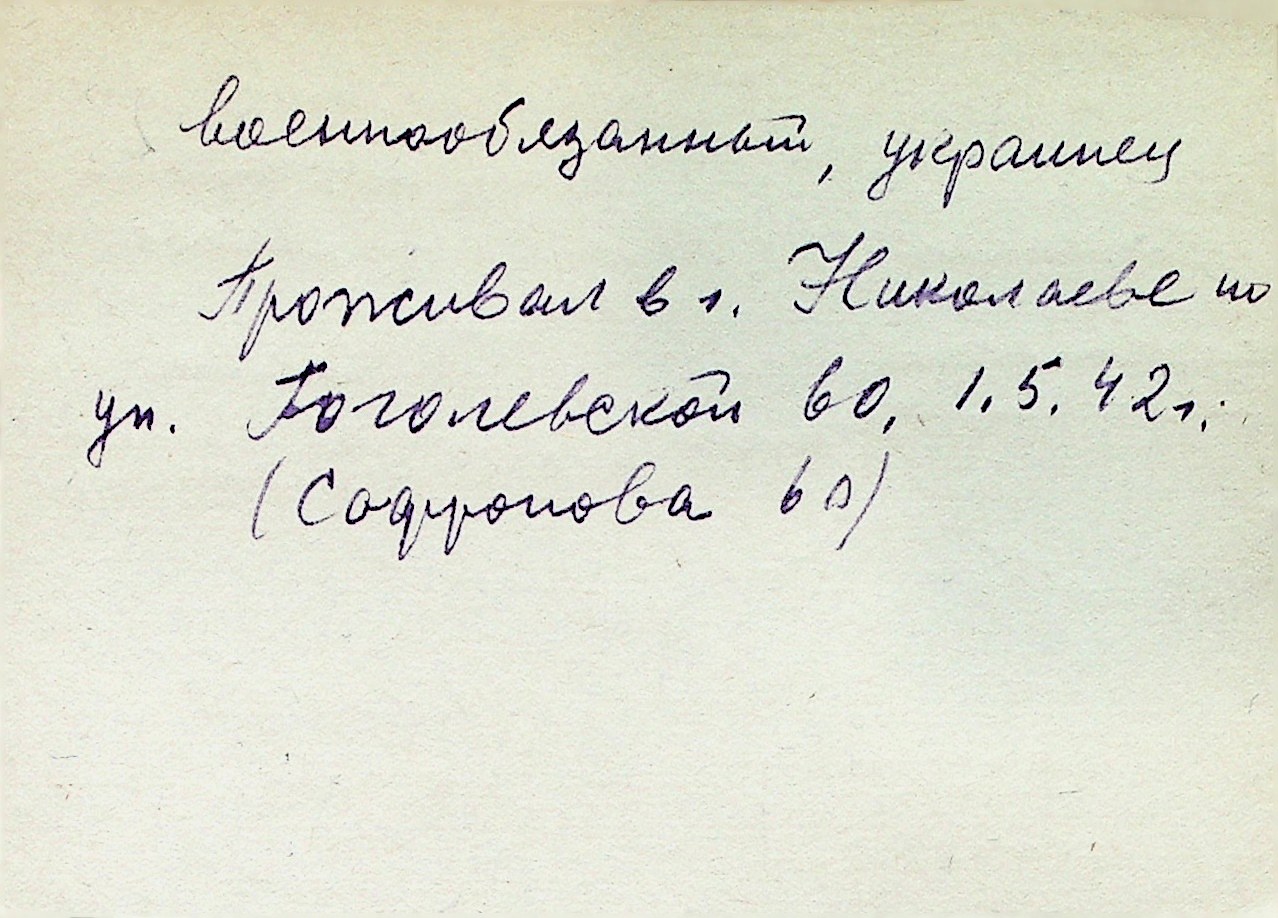 военнообязанный, украинец
Проживал в г. Николаеве по
ул. Гоголевской 60, 1.5.42г.
(Софронова 60)